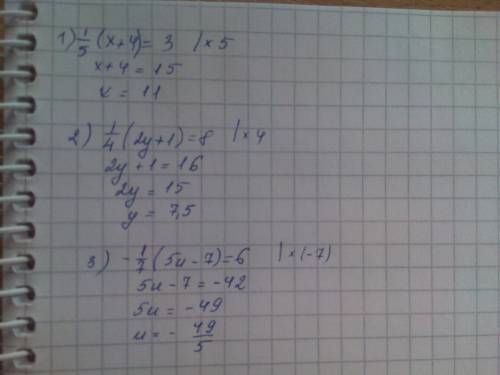 1) 1/5 (x+4) = 3 | x 5
x+4 = 15
x = 11
2) 1/4 (2y+1) = 8 | x 4
2y+1 = 16
2y = 15
y = 7,5
3) -1/7 (5u-7) = 6 | x (-7)
5u-7 = -42
5u = -49
u = - 49/5